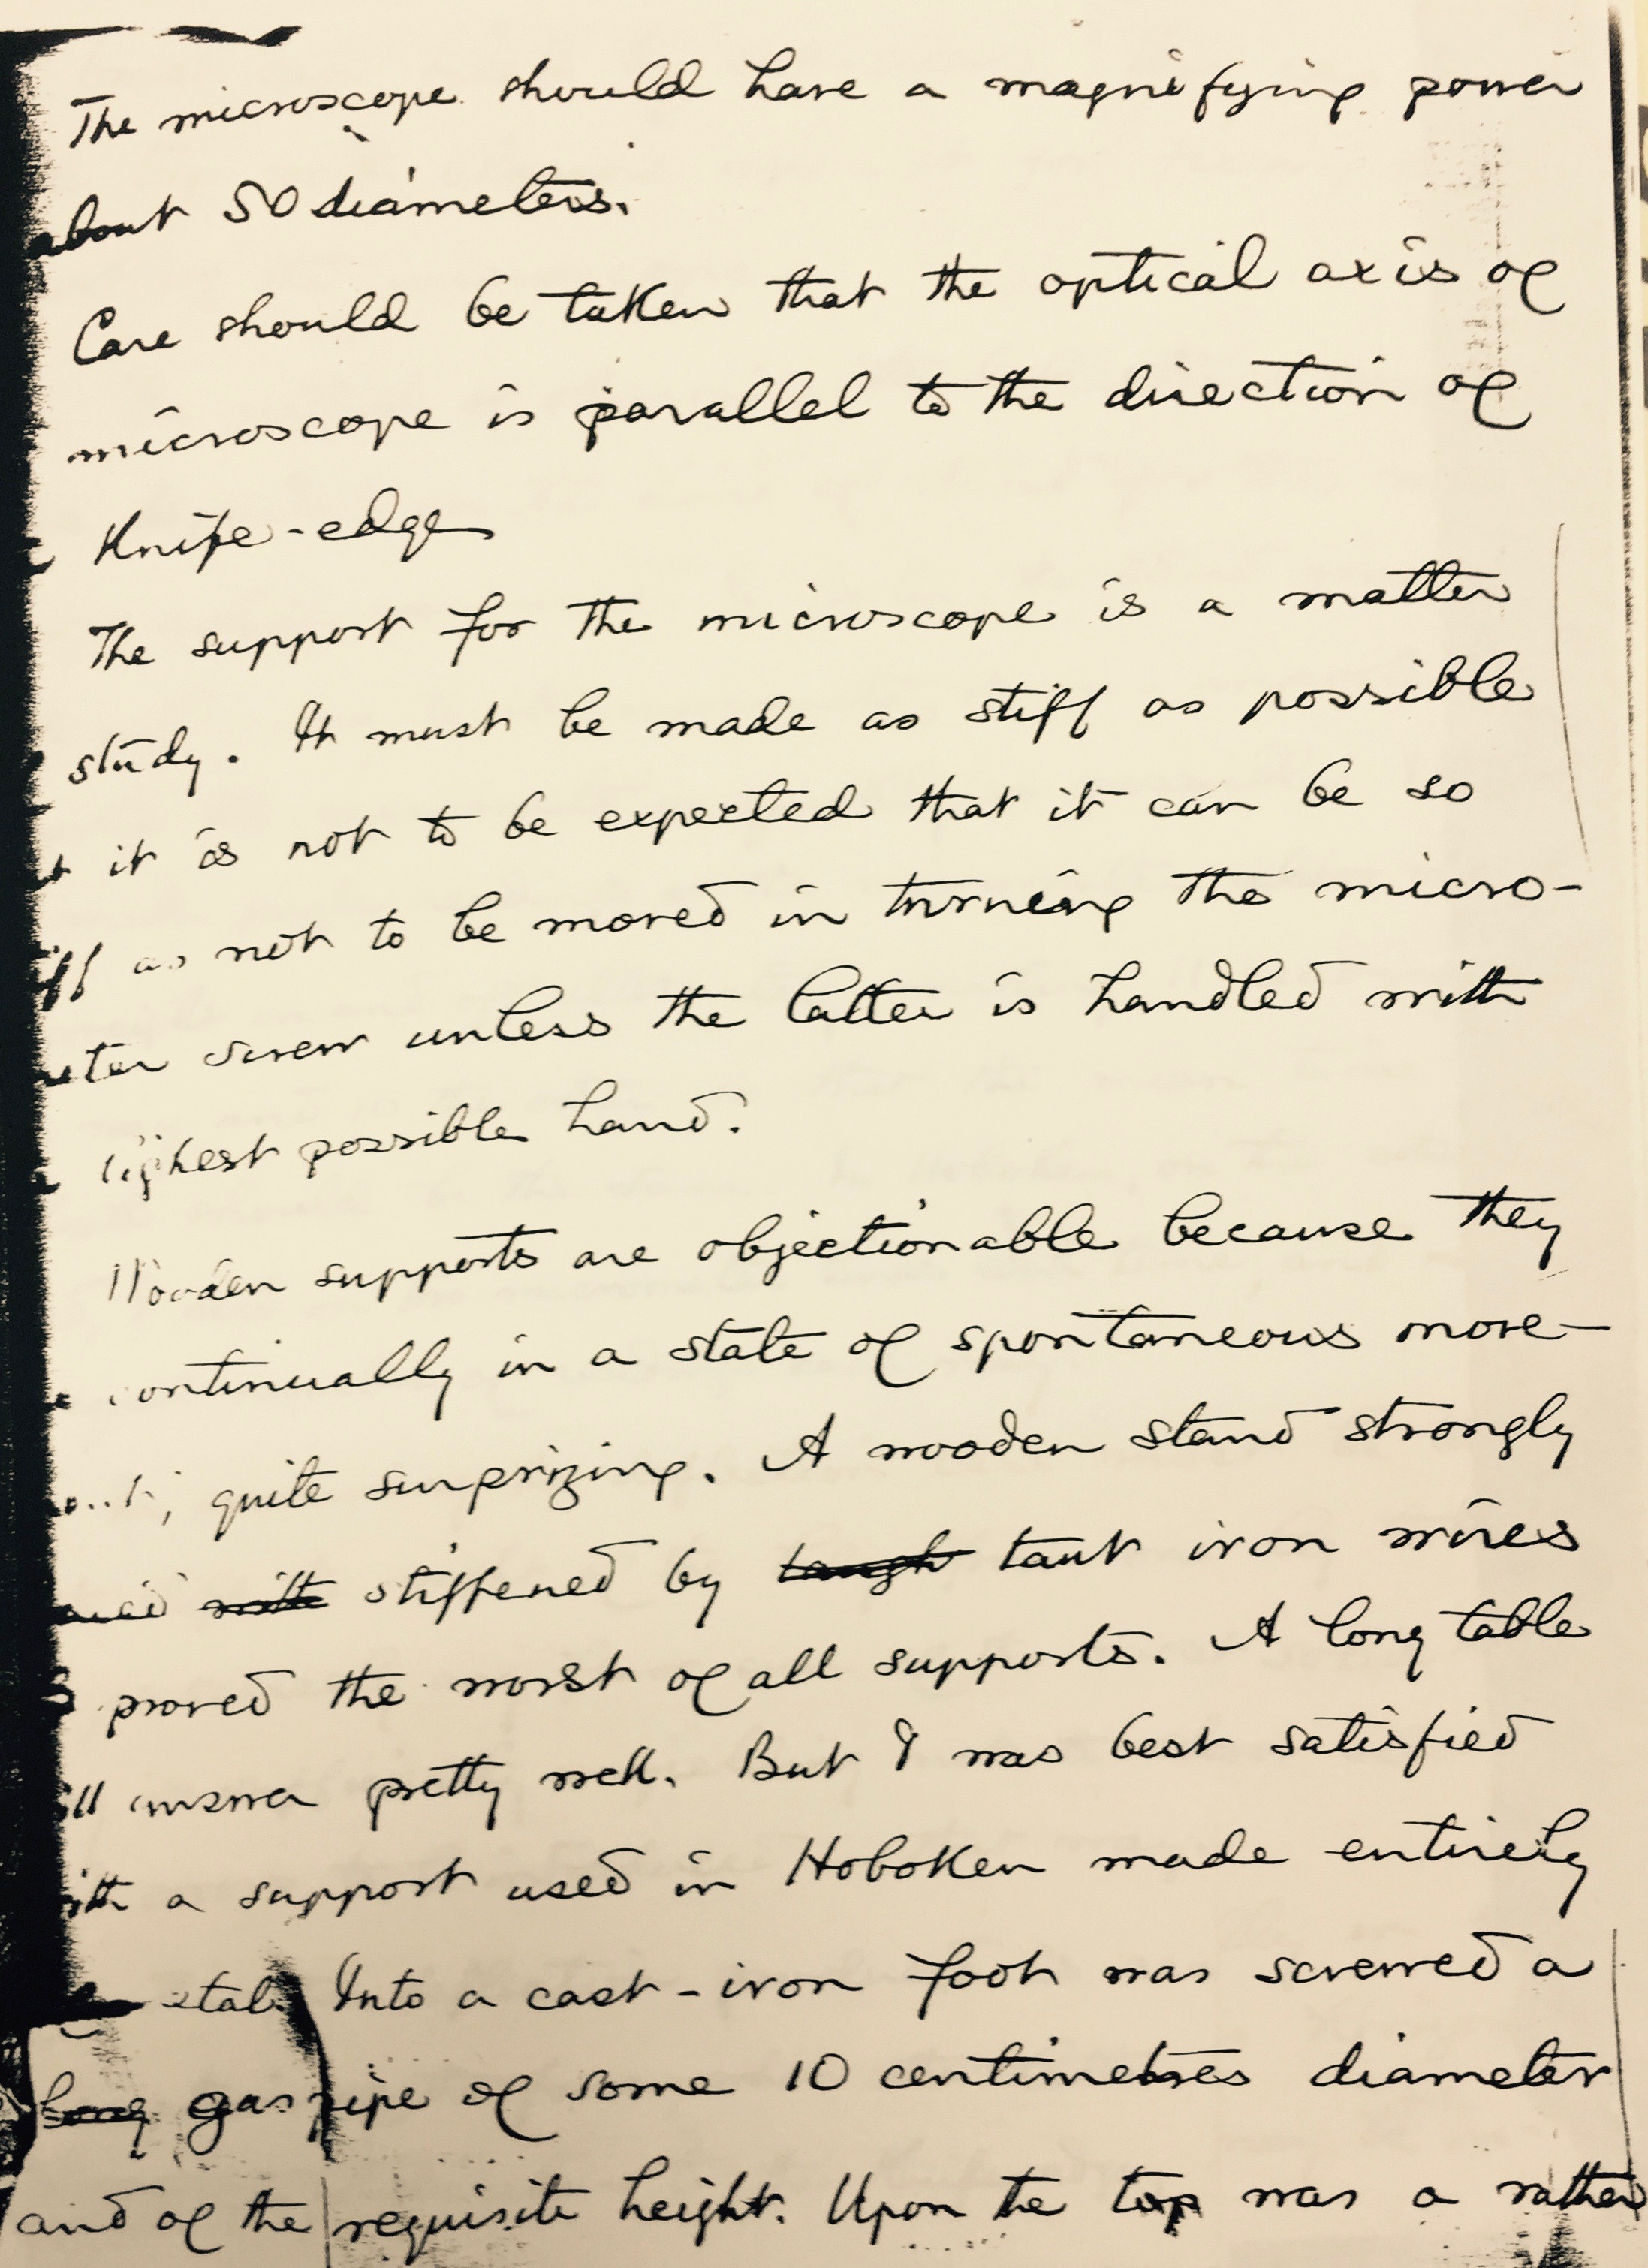 The microscope should have a magnifying power
about 50 diameters.
Care should be taken that the optical axis of
microscope is parallel to the direction of
Knife-edge
The support for the microscope is a matter
study. It must be made as stiff as possible
it is not to be expected that it can be so
as not to be moved in turning the micro-
screw unless the latter is handled with
lightest possible hand.
Wooden supports are objectionable because they
continually in a state of spontaneous move-
quite surprizing. A wooden stand strongly
with stiffened by taugh taut iron wires
proved the worst of all supports. A long table
answer pretty well. But I was best satisfied
a support used in Hoboken made entirely
Into a cast-iron foot was screwed a
long gas pipe of some 10 centimetres diameter
and of the requisite height. Upon the top was a rather